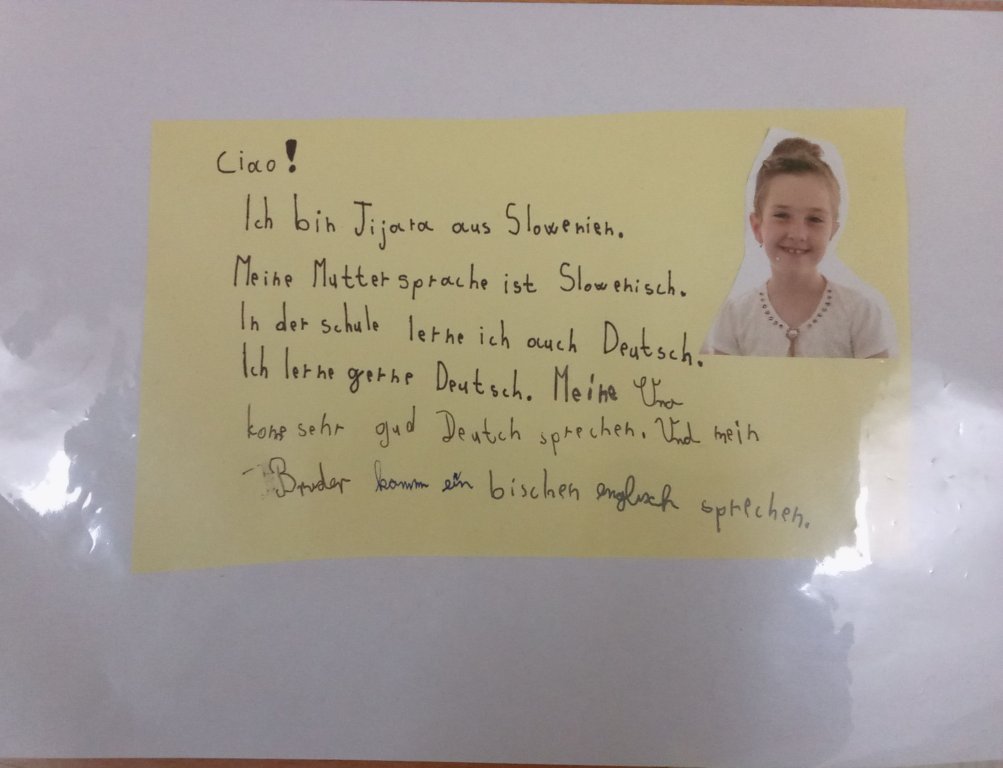 Ciao!
Ich bin Tijara aus Slowenien.
Meine Muttersprache ist Slowenisch.
In der schule lerne ich auch Deutsch.
Ich lerne gerne Deutsch. Meine
sehr gud Deutch sprechen. Und mein
Bruder komm ein bischen englisch sprechen.